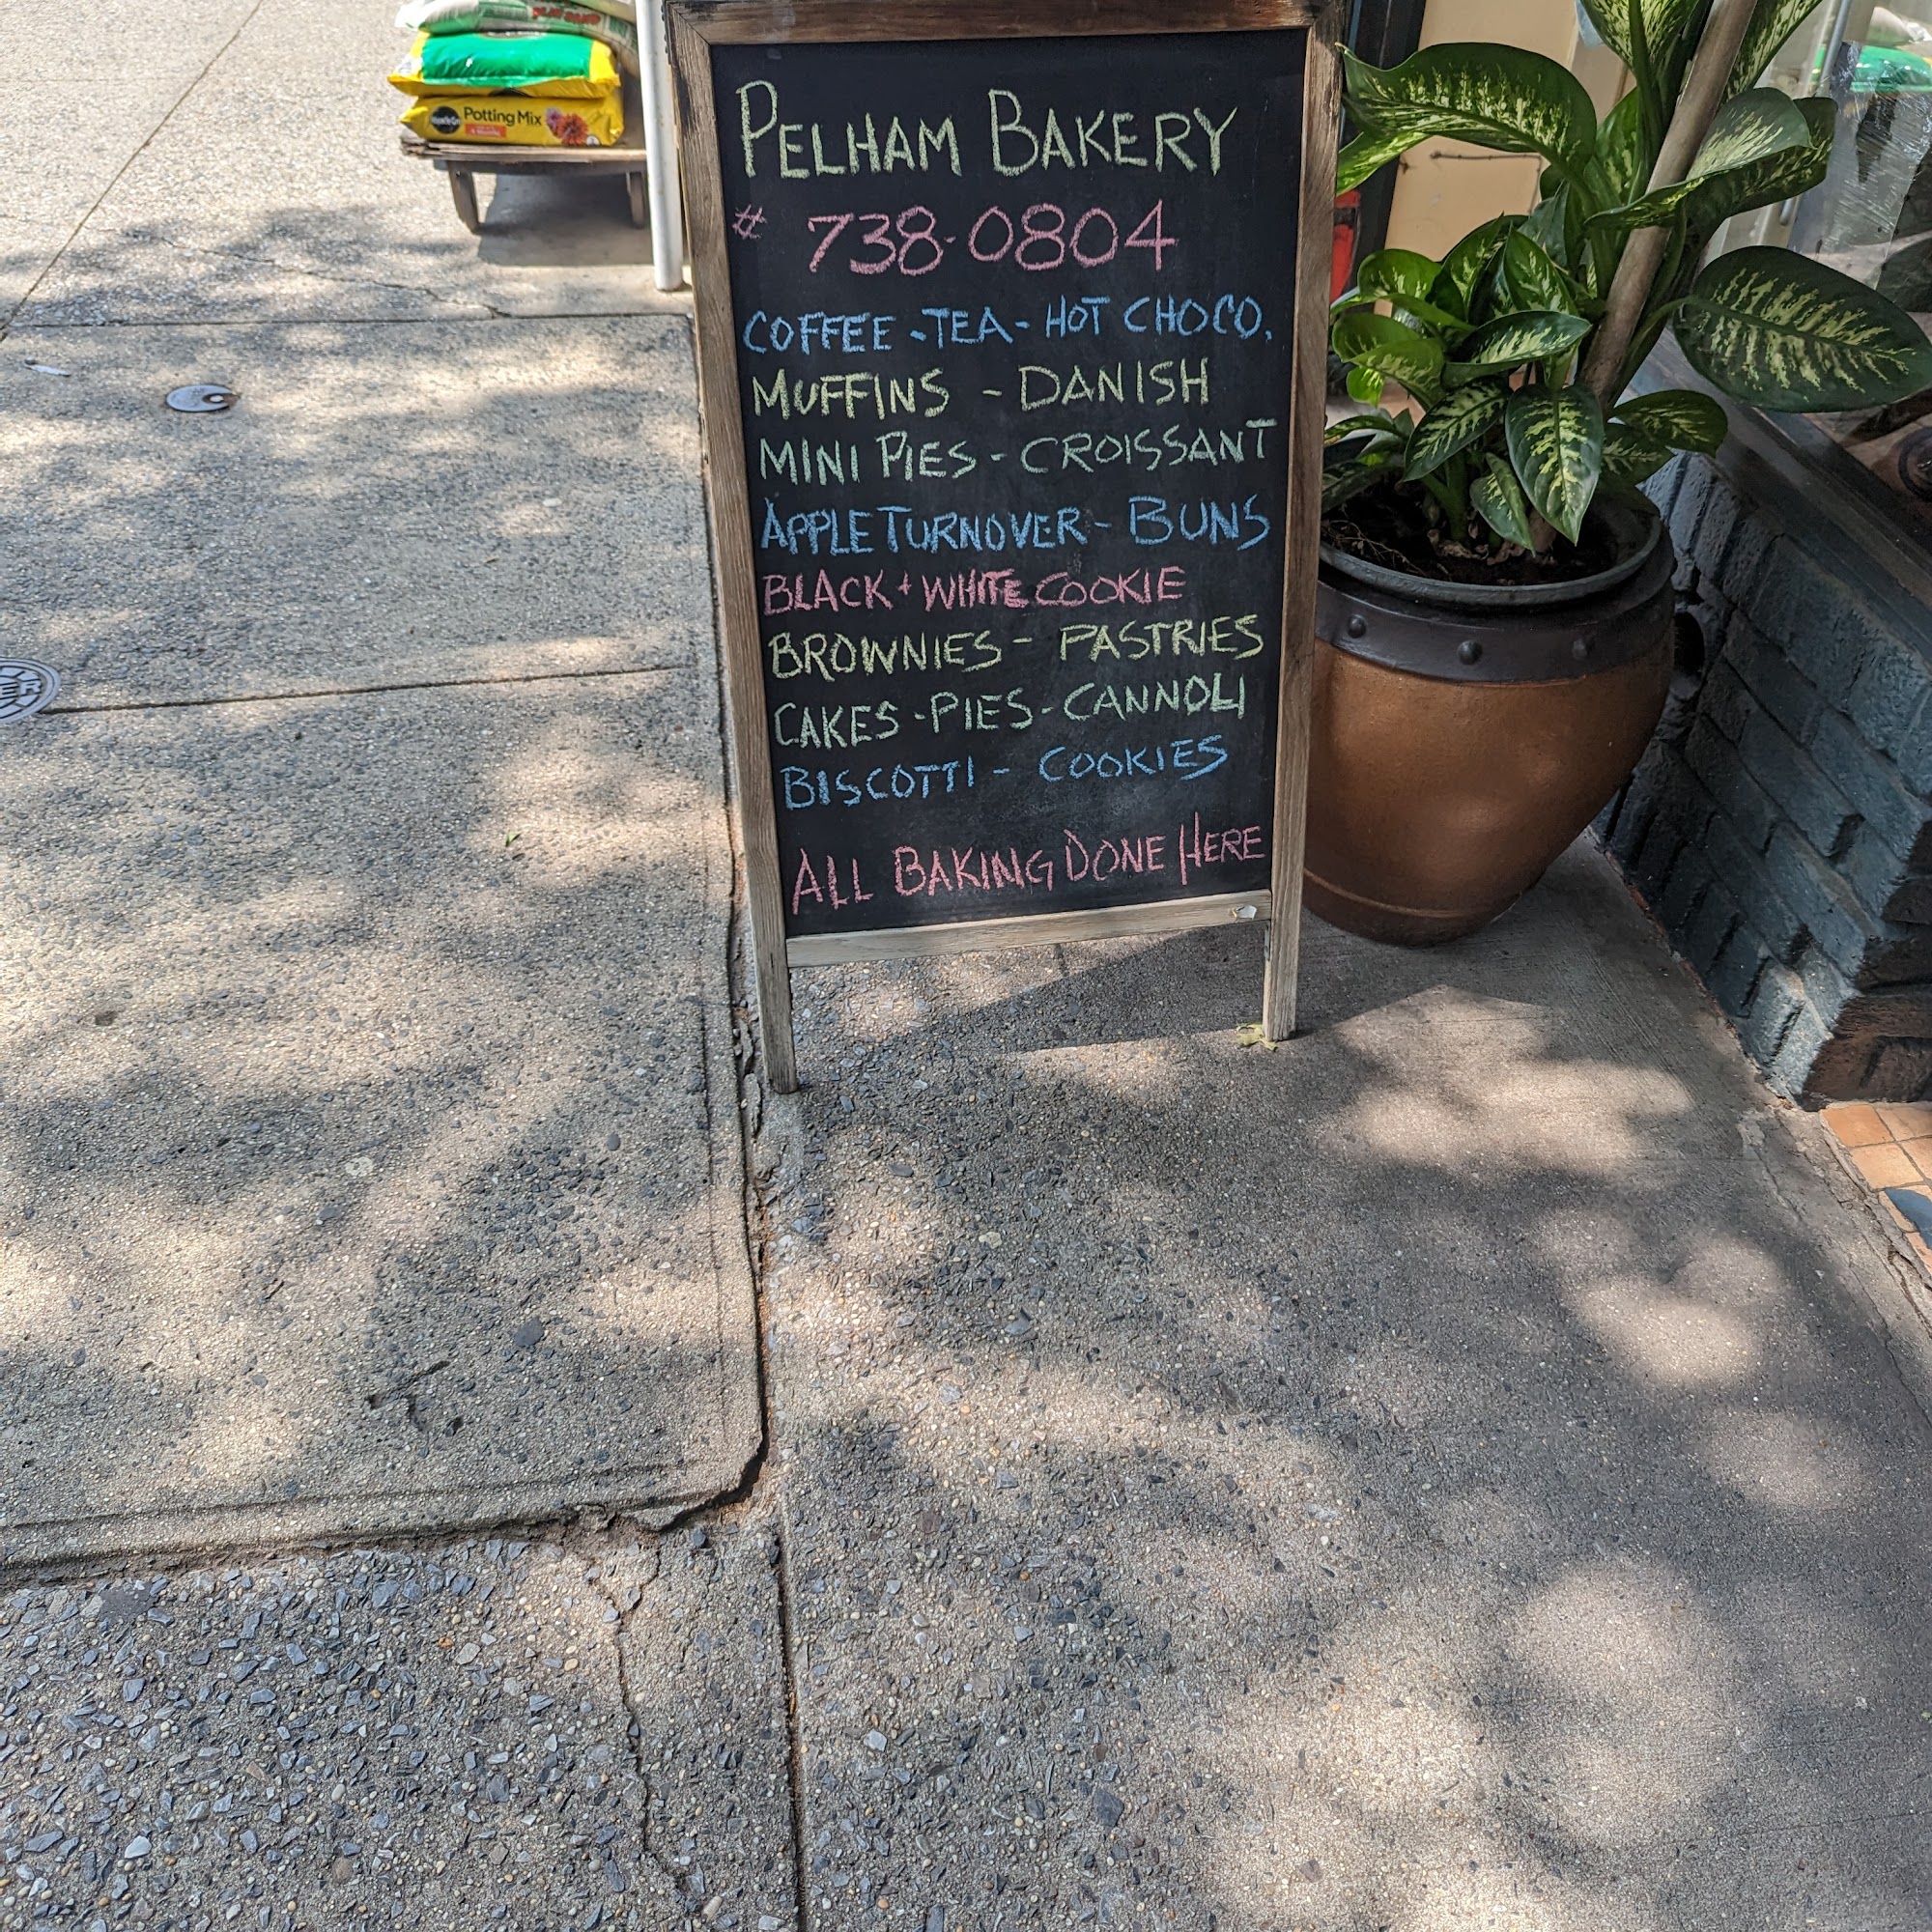 Potting Mix
PELHAM BAKERY
# 738-0804
COFFEE - TEA - HOT CHOCO.
MUFFINS - DANISH
MINI PIES - CROISSANT
APPLE TURNOVER - BUNS
BLACK + WHITE COOKIE
BROWNIES - PASTRIES
CAKES - PIES - CANNOLI
BISCOTTI - COOKIES
ALL BAKING DONE HERE